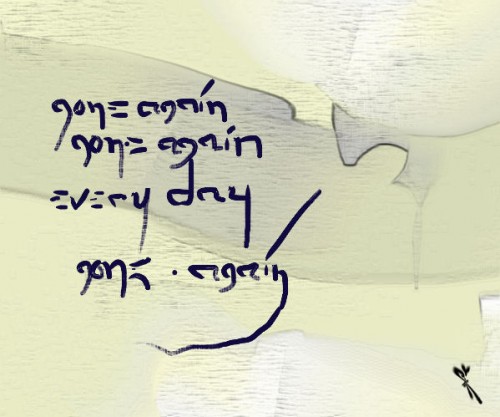 gone again
gone again
every day
gone . again